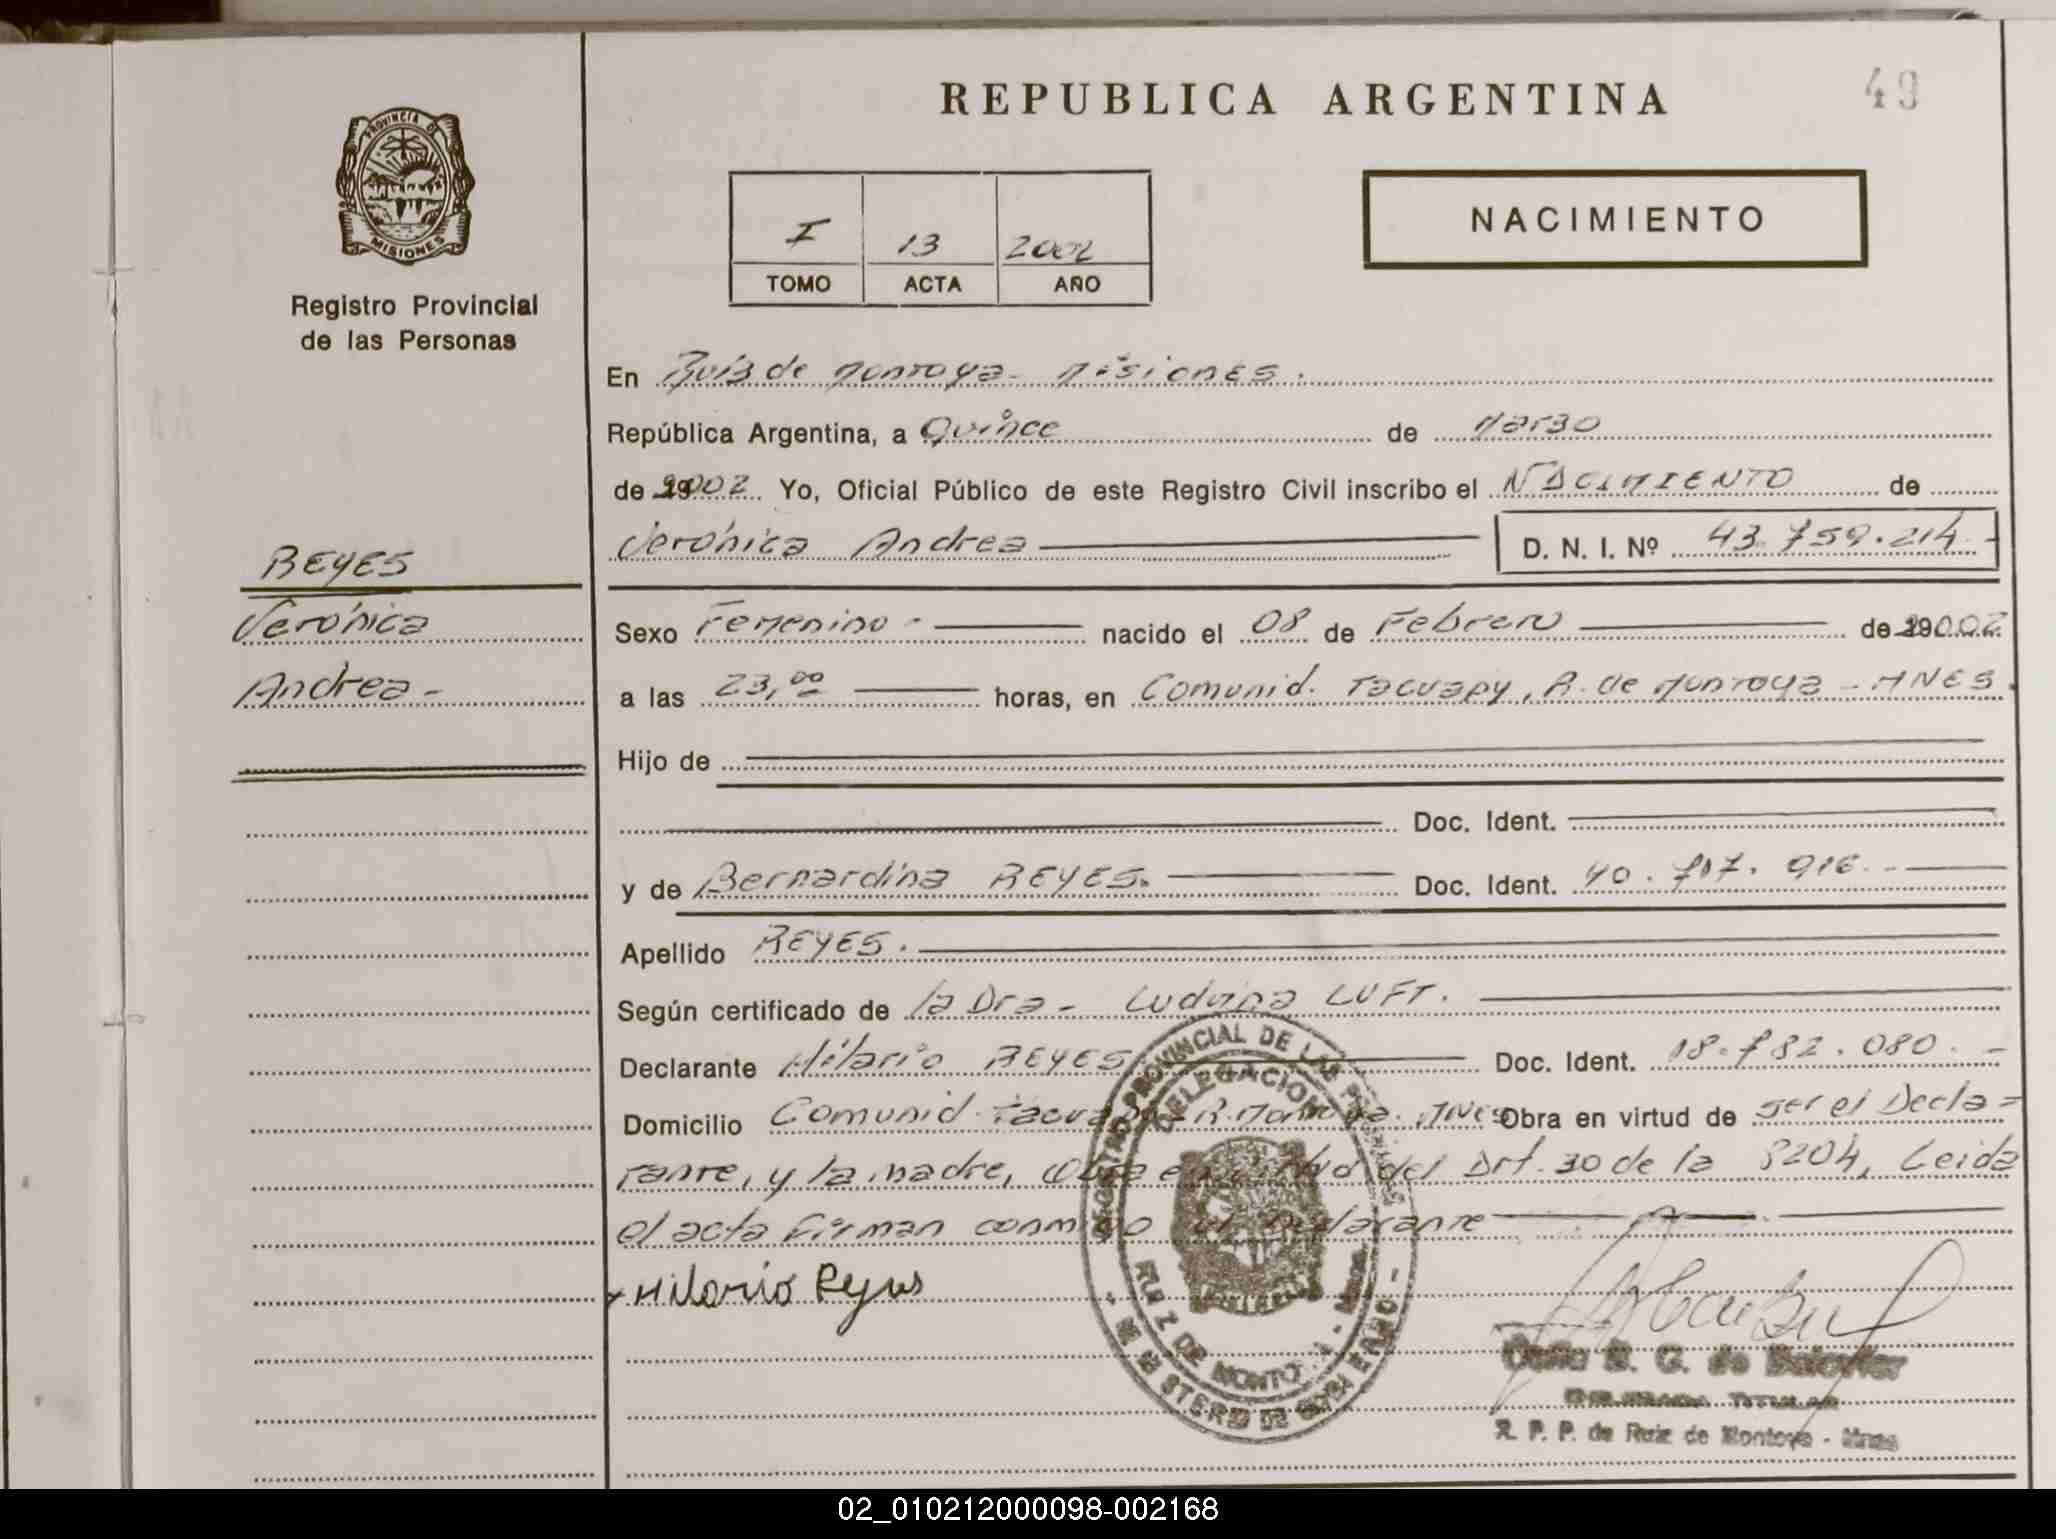 REPUBLICA ARGENTINA
49
PROVINCIA DE
MISIONES
Registro Provincial
de las Personas
I 13 2002
TOMO ACTA AÑO
NACIMIENTO
En Ruiz de Montoya - Misiones.
República Argentina, a Quince de Marzo
de 2002 Yo, Oficial Público de este Registro Civil inscribo el NACIMIENTO de
Verónica Andrea D. N. I. Nº 43.759.214.-
REYES
Verónica
Andrea-
Sexo Femenino- nacido el 08 de Febrero de 2002
a las 23,00 horas, en Comunid. Tacuapy, R. de Montoya - MNES.
Hijo de
Doc. Ident.
y de Bernardina REYES. Doc. Ident. 40.717.916.-
Apellido REYES.
Según certificado de la Dra- Ludvina LUFT.
Declarante Hilario REYES Doc. Ident. 18.782.080.-
Domicilio Comunid. Tacuapy-R. Montoya. MNES Obra en virtud de ser el Decla=
rante, y la madre, Obra en virtud del Art. 30 de la 8204, Leida
el acta firman conmigo el declarante
Hilario Reyes
REGISTRO PROVINCIAL DE LAS PERSONAS
DELEGACION
RUIZ DE MONTOYA - Mnes.
- MINISTERIO DE GOBIERNO -
R. G. de
TITULAR
R. P. P. de Ruiz de Montoya - Mnes
02_010212000098-002168